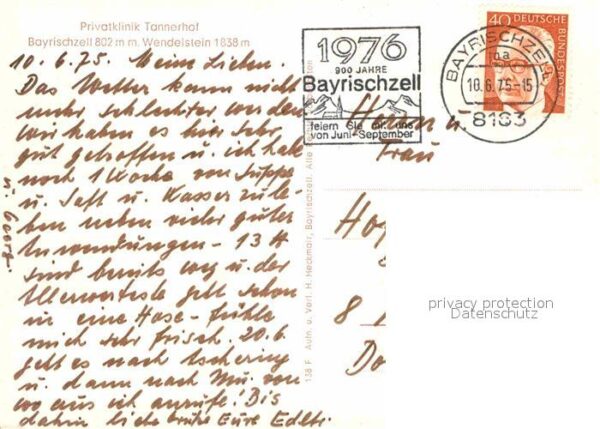 Privatklinik Tannerhof
Bayrischzell 802 m m. Wendelstein 1838 m
10.6.75. Meine Lieben.
Das Wetter kann nicht
mehr schlechter werden
wir haben es hier sehr
gut getroffen u. ich hab
noch 1 Woche von Suppe
u. Saft u. Wasser zu le-
ben neben vieler guter
Anwendungen - 13 tt
sind bereits weg u. der
Allerwerteste geht schon
in eine Hose - fühle
mich sehr frisch. 20.6
geht es nach
u. dann nach Mü. von
wo aus ich anrufe! Bis
dahin liebe Grüße Eure
u. Georg.
1976
900 JAHRE
Bayrischzell
feiern Sie mit uns
von Juni-September
BAYRISCHZELL
10.6.75-15
8183
40 DEUTSCHE
BUNDESPOST
Herrn u.
Frau
8
138 F Aufn. u. Verl. H. Heckmair, Bayrischzell, Alle
privacy protection
Datenschutz